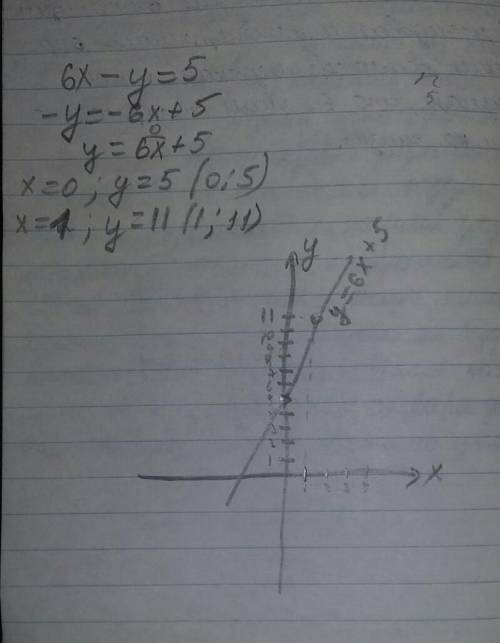 6x - y = 5
-y = -6x + 5
y = 6x + 5
x = 0 ; y = 5 (0 ; 5)
x = 1 ; y = 11 (1 ; 11)
y
y = 6x + 5
11
x